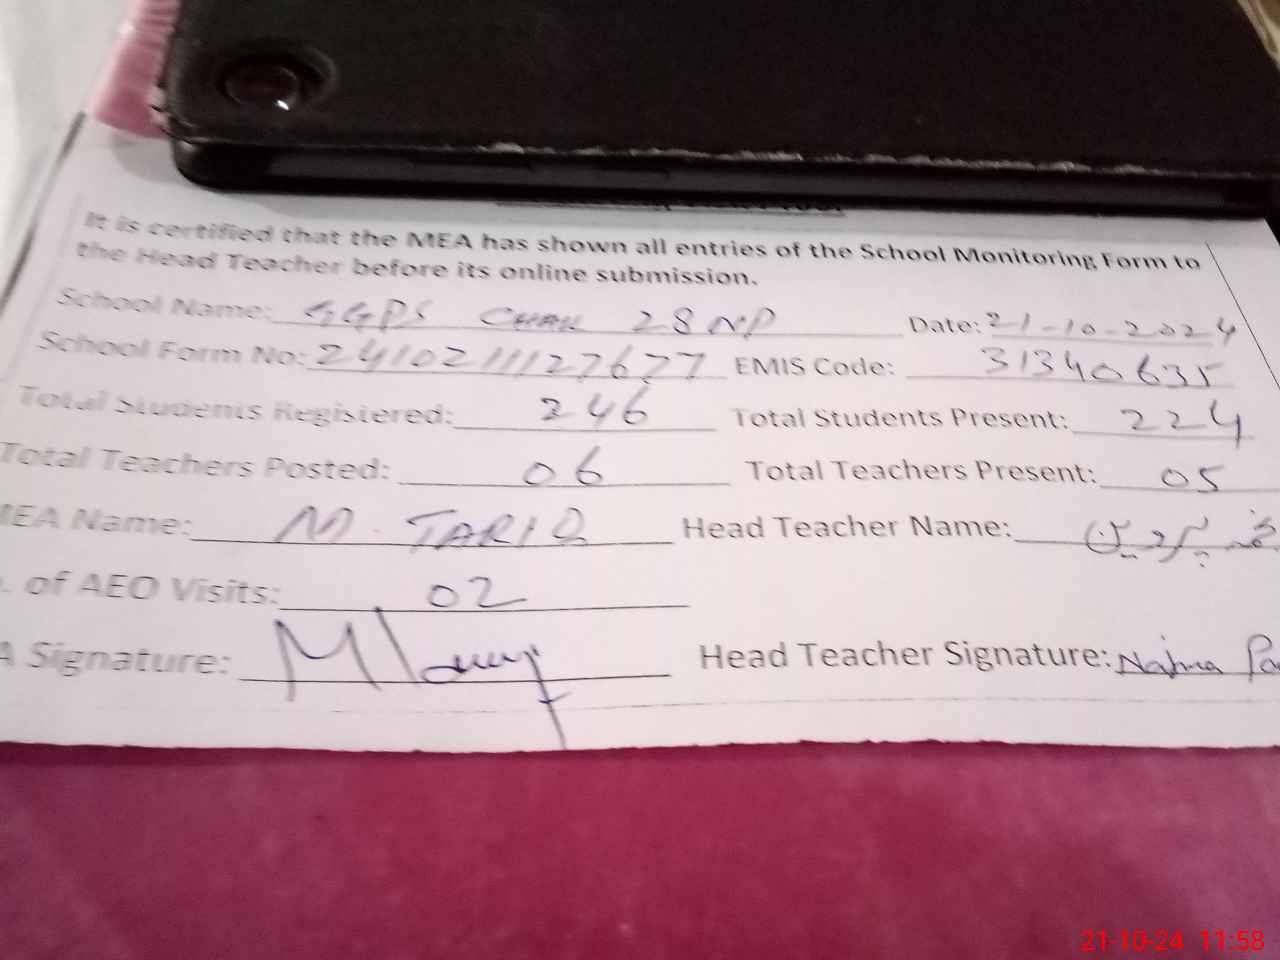 It is certified that the MEA has shown all entries of the School Monitoring Form to
the Head Teacher before its online submission.
School Name: GGPS CHAK 28 NP Date: 21-10-2024
School Form No: 241021112 7677 EMIS Code: 31340635
Total Students Registered: 246 Total Students Present: 224
Total Teachers Posted: 06 Total Teachers Present: 05
MEA Name: M. TARIQ Head Teacher Name: پروین
. of AEO Visits: 02
A Signature: Head Teacher Signature: Najma Pa
21-10-24 11:58